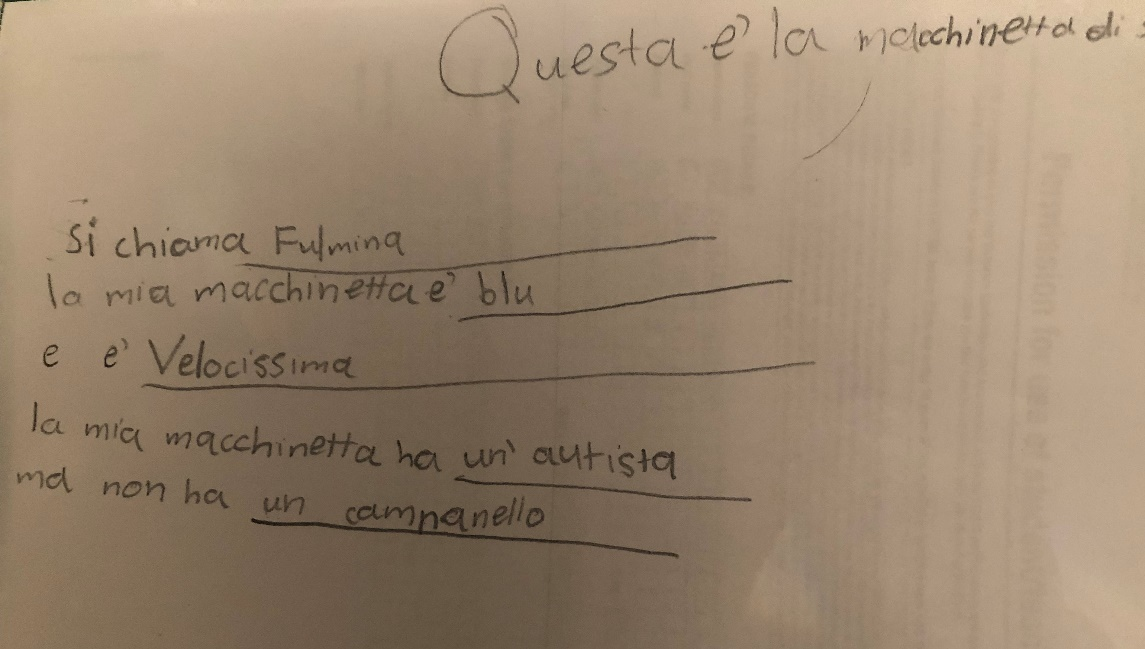 Questa e' la macchinetta di
Si chiama Fulmina
la mia macchinetta e' blu
e e' Velocissima
la mia macchinetta ha un' autista
ma non ha un campanello